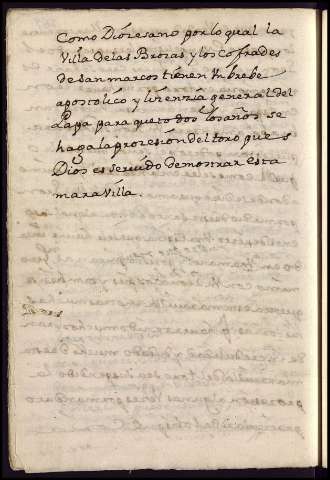 Como Diocesano por lo qual la
Villa de las Brosas y los cofrades
de san marcos tienen Vn brebe
apostolico y licenzia general del
Papa para que todos los años se
haga la prozesion del toro que
Dios es seruido demostrar esta
mara Villa